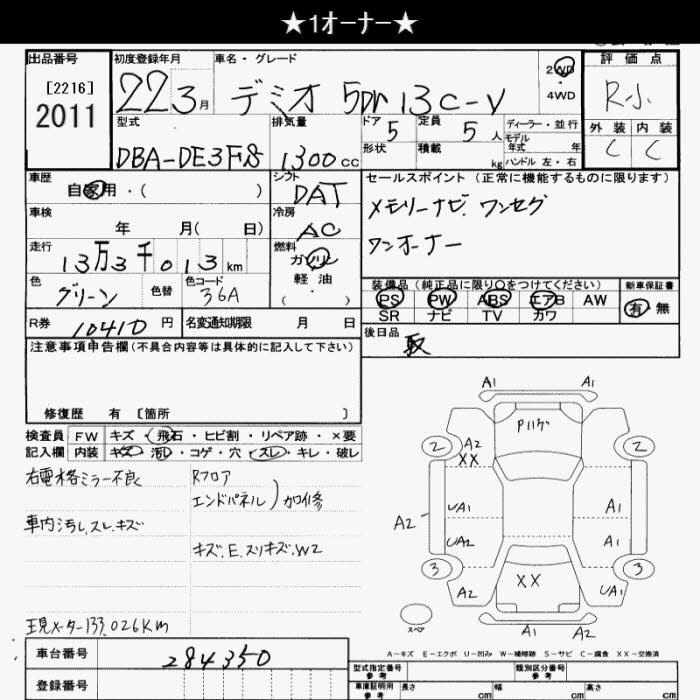 ★1オーナー★
出品番号
[2216]
2011
初度登録年月
22 3月
車名・グレード
デミオ 5Dr 13C-V
2WD
4WD
評価点
R小
型式
DBA-DE3FS
排気量
1300cc
ドア 5
形状
定員 5人
積載 kg
ディーラー・並行
モデル年式 年
ハンドル 左・右
外装 内装
C C
車歴
自家用・( )
シフト
DAT
セールスポイント (正常に機能するものに限ります)
メモリーナビ. ワンセグ
ワンオーナー
車検
年 月( 日)
冷房
AC
走行
13万3千013km
燃料
ガソリン
軽油
( )
色
グリーン
色替
色コード
36A
装備品(純正品に限り○をつけてください)
新車保証書
PS PW ABS エアB AW
SR ナビ TV カワ
有・無
R券 10410円
名変通知期限 月 日
後日品 取
注意事項申告欄(不具合内容等は具体的に記入して下さい)
修復歴 有 [箇所 ]
検査員 FW キズ・飛石・ヒビ割・リペア跡・×要
記入欄 内装 キズ・汚レ・コゲ・穴・スレ・キレ・破レ
右電格ミラー不良
Rフロア
エンドパネル)加修
車内汚し.スレ.キズ
キズ.E.スリキズ.W2
現メーター133,026Km
A1 A1
Pハゲ
2 A2 XX 2
UA1 A1
A2
UA2 A1
3 XX 3
A2 UA1
A1 A2
スペア
A-キズ E-エクボ U-凹み W-補修跡 S-サビ C-腐食 XX-交換済
車台番号 284350
登録番号
型式指定番号 参考
類別区分番号 参考
車庫証明用 参考 長さ cm 幅 cm 高さ cm